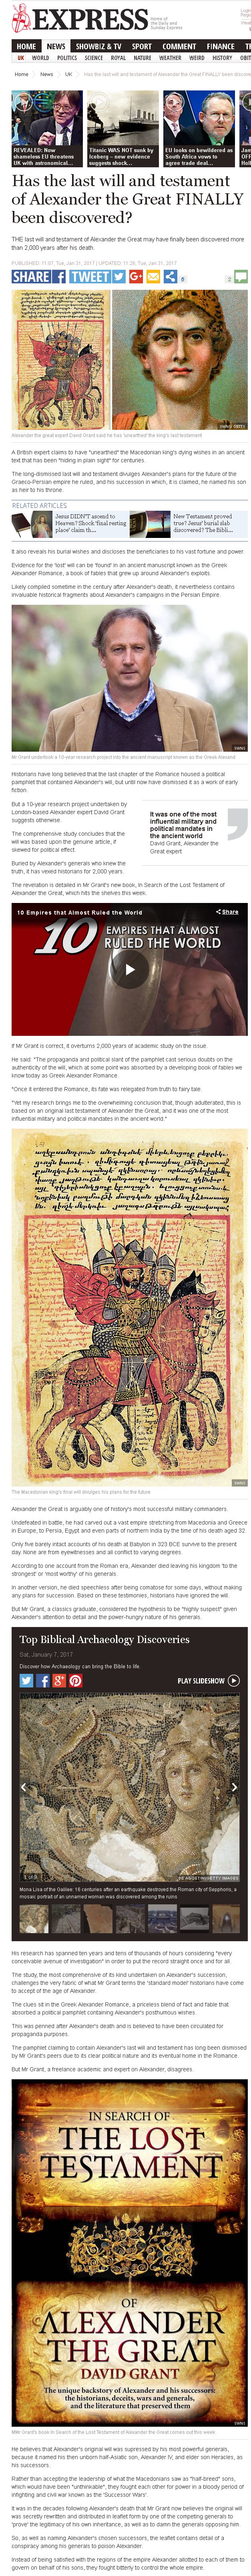 EXPRESS
Home of
the Daily and
Sunday Express
HOME NEWS SHOWBIZ & TV SPORT COMMENT FINANCE
UK WORLD POLITICS SCIENCE ROYAL NATURE WEATHER WEIRD HISTORY
Home News UK Has the last will and testament of Alexander the Great FINALLY been
REVEALED: Now
shameless EU threatens
UK with astronomical...
Titanic WAS NOT sunk by
Iceberg – new evidence
suggests shock...
EU looks on bewildered as
South Africa vows to
agree trade deal...
Has the last will and testament
of Alexander the Great FINALLY
been discovered?
THE last will and testament of Alexander the Great may have finally been discovered more
than 2,000 years after his death.
PUBLISHED: 11:07, Tue, Jan 31, 2017 | UPDATED: 11:26, Tue, Jan 31, 2017
SHARE TWEET
Alexander the great expert David Grant said he has 'unearthed' the king's last testament
A British expert claims to have "unearthed" the Macedonian king's dying wishes in an ancient
text that has been "hiding in plain sight" for centuries.
The long-dismissed last will and testament divulges Alexander's plans for the future of the
Graeco-Persian empire he ruled, and his succession in which, it is claimed, he named his son
as heir to his throne.
RELATED ARTICLES
Jesus DIDN'T ascend to
Heaven? Shock 'final resting
place' claim th...
New Testament proved
true? Jesus' burial slab
discovered? The Bibli...
It also reveals his burial wishes and discloses the beneficiaries to his vast fortune and power.
Evidence for the 'lost' will can be 'found' in an ancient manuscript known as the Greek
Alexander Romance, a book of fables that grew up around Alexander's exploits.
Likely compiled sometime in the century after Alexander's death, it nevertheless contains
invaluable historical fragments about Alexander's campaigns in the Persian Empire.
SWNS
Mr Grant undertook a 10-year research project into the ancient manuscript known as the Greek Alexand
Historians have long believed that the last chapter of the Romance housed a political
pamphlet that contained Alexander's will, but until now have dismissed it as a work of early
fiction.
But a 10-year research project undertaken by
London-based Alexander expert David Grant
suggests otherwise.
The comprehensive study concludes that the
will was based upon the genuine article, if
skewed for political effect.
Buried by Alexander's generals who knew the
truth, it has vexed historians for 2,000 years.
It was one of the most
influential military and
political mandates in
the ancient world
David Grant, Alexander the
Great expert
The revelation is detailed in Mr Grant's new book, In Search of the Lost Testament of
Alexander the Great, which hits the shelves this week.
10 Empires that Almost Ruled the World
Share
10 EMPIRES THAT ALMOST
RULED THE WORLD
If Mr Grant is correct, it overturns 2,000 years of academic study on the issue.
He said: "The propaganda and political slant of the pamphlet cast serious doubts on the
authenticity of the will, which at some point was absorbed by a developing book of fables we
know today as Greek Alexander Romance.
"Once it entered the Romance, its fate was relegated from truth to fairy tale.
"Yet my research brings me to the overwhelming conclusion that, though adulterated, this is
based on an original last testament of Alexander the Great, and it was one of the most
influential military and political mandates in the ancient world."
SWNS
The Macedonian king's final will divulges his plans for the future
Alexander the Great is arguably one of history's most successful military commanders.
Undefeated in battle, he had carved out a vast empire stretching from Macedonia and Greece
in Europe, to Persia, Egypt and even parts of northern India by the time of his death aged 32.
Only five barely intact accounts of his death at Babylon in 323 BCE survive to the present
day. None are from eyewitnesses and all conflict to varying degrees.
According to one account from the Roman era, Alexander died leaving his kingdom 'to the
strongest' or 'most worthy' of his generals.
In another version, he died speechless after being comatose for some days, without making
any plans for succession. Based on these testimonies, historians have ignored the will.
But Mr Grant, a classics graduate, considered the hypothesis to be "highly suspect" given
Alexander's attention to detail and the power-hungry nature of his generals.
Top Biblical Archaeology Discoveries
Sat, January 7, 2017
Discover how Archaeology can bring the Bible to life
PLAY SLIDESHOW
Mona Lisa of the Galilee: 16 centuries after an earthquake destroyed the Roman city of Sepphoris, a
mosaic portrait of an unnamed woman was discovered among the ruins
His research has spanned ten years and tens of thousands of hours considering "every
conceivable avenue of investigation" in order to put the record straight once and for all.
The study, the most comprehensive of its kind undertaken on Alexander's succession,
challenges the very fabric of what Mr Grant terms the 'standard model' historians have come
to accept of the age of Alexander.
The clues sit in the Greek Alexander Romance, a priceless blend of fact and fable that
absorbed a political pamphlet containing Alexander's posthumous wishes.
This was penned after Alexander's death and is believed to have been circulated for
propaganda purposes.
The pamphlet claiming to contain Alexander's last will and testament has long been dismissed
by Mr Grant's peers due to its clear political nature and its eventual home in the Romance.
But Mr Grant, a freelance academic and expert on Alexander, disagrees.
IN SEARCH OF
THE LOST
TESTAMENT
OF
ALEXANDER
THE GREAT
DAVID GRANT
The unique backstory of Alexander and his successors:
the historians, deceits, wars and generals,
and the literature that preserved them
SWNS
Grant's book In Search of the Lost Testament of Alexander the Great comes out this week
He believes that Alexander's original will was supressed by his most powerful generals,
because it named his then unborn half-Asiatic son, Alexander IV, and elder son Heracles, as
his successors.
Rather than accepting the leadership of what the Macedonians saw as "half-bred" sons,
which would have been "unthinkable", they fought each other for power in a bloody period of
infighting and civil war known as the 'Successor Wars'.
It was in the decades following Alexander's death that Mr Grant now believes the original will
was secretly rewritten and distributed in leaflet form by one of the competing generals to
'prove' the legitimacy of his own inheritance, as well as to damn the generals opposing him.
So, as well as naming Alexander's chosen successors, the leaflet contains detail of a
conspiracy among his generals to poison Alexander.
Instead of being satisfied with the regions of the empire Alexander allotted to each of them to
govern on behalf of his sons, they fought bitterly to control the whole empire.